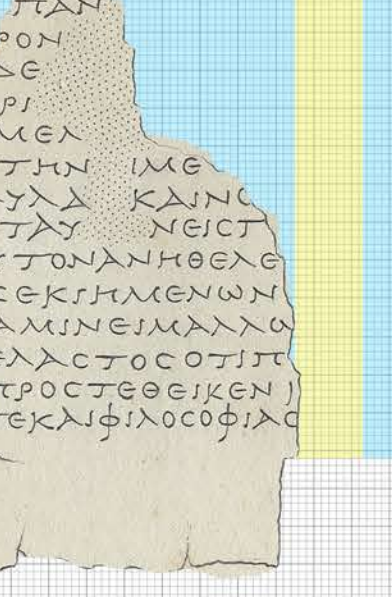 ΠΑΝ
ΡΟΝ
ΔΕ
ΡΙ
ΜΕΛ
ΤΗΝ ΙΜΕ
ΥΛΑ ΚΑΙΝ
ΤΑΥ ΝΕΙCΤ
ΥΤΟΝΑΝΗΘΕΛΕ
CΕΚΙΗΜΕΝΩΝ
ΑΜΙΝΕΙΜΑΛΛΩ
ΕΛΑCΤΟCΟΤΙΠ
ΤΡΟCΤΕΘΕΙΚΕΝ
ΤΕΚΑΙΦΙΛΟCΟΦΙΑC